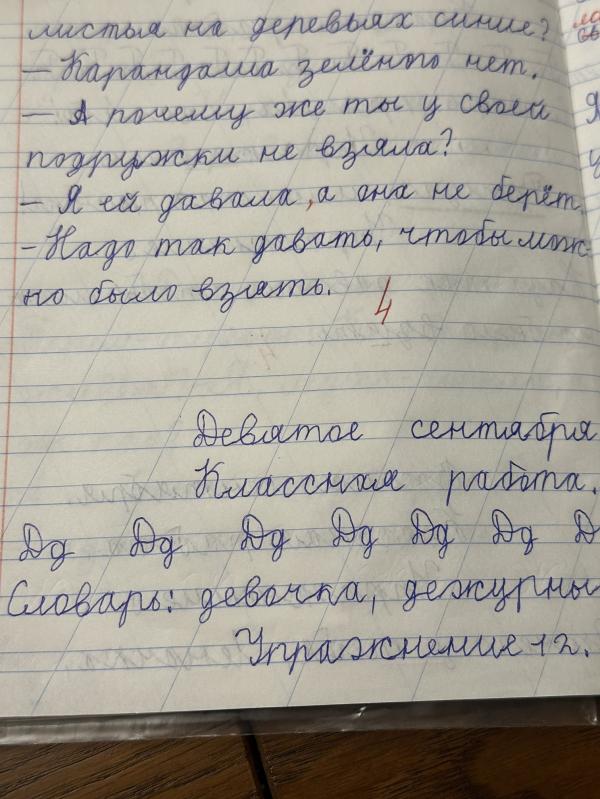 листья на деревьях синие?
— Карандаша зелёного нет.
— А почему же ты у своей
подружки не взяла?
— Я ей давала, а она не берёт.
- Надо так давать, чтобы мож-
но было взять.
4
Девятое сентября
Классная работа.
Дд Дд Дд Дд Дд Дд Д
Словарь: девочка, дежурны
Упражнение 12.